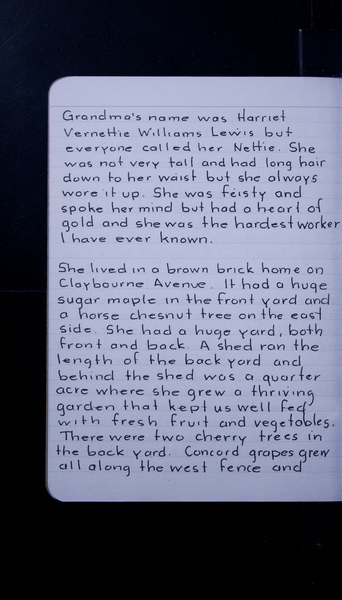 Grandma's name was Harriet
Vernettie Williams Lewis but
everyone called her Nettie. She
was not very tall and had long hair
down to her waist but she always
wore it up. She was feisty and
spoke her mind but had a heart of
gold and she was the hardest worker
I have ever known.
She lived in a brown brick home on
Claybourne Avenue. It had a huge
sugar maple in the front yard and
a horse chesnut tree on the east
side. She had a huge yard, both
front and back. A shed ran the
length of the back yard and
behind the shed was a quarter
acre where she grew a thriving
garden that kept us well fed
with fresh fruit and vegetables.
There were two cherry trees in
the back yard. Concord grapes grew
all along the west fence and